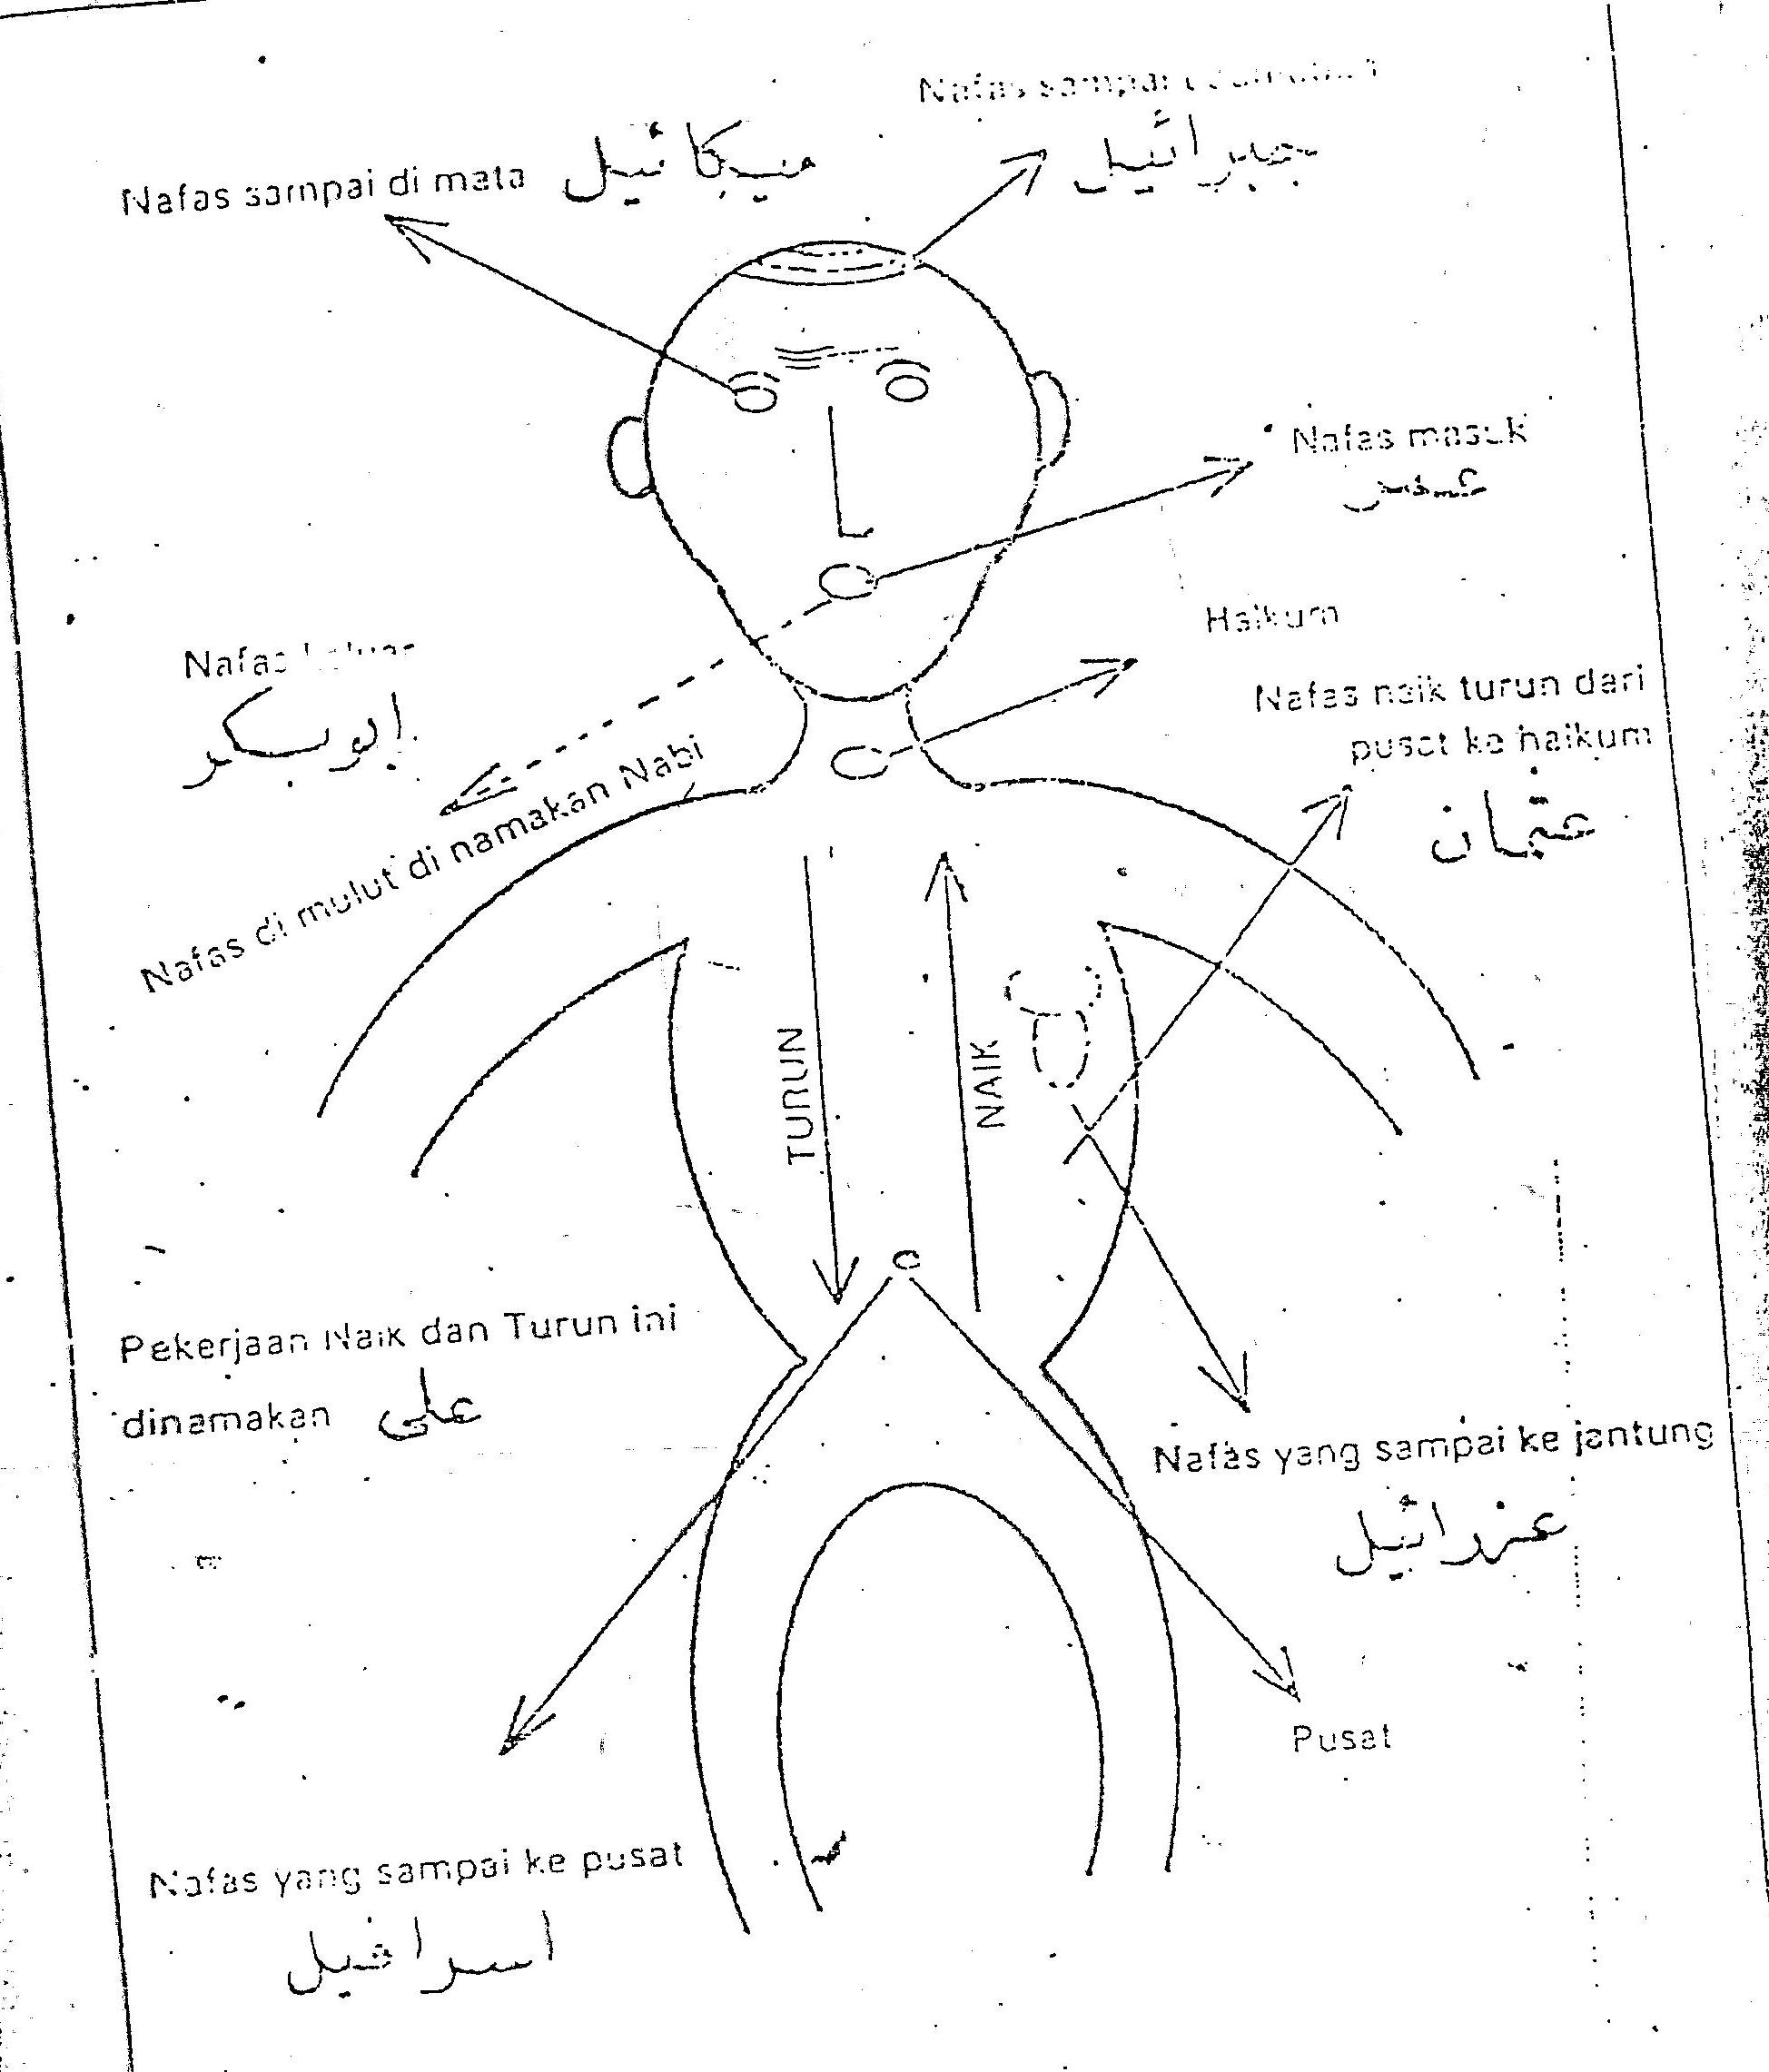 Nafas sampai
جبرائيل
Nafas sampai di mata ميكائيل
Nafas masuk
Halkum
Nafas keluar
ابوبكر
Nafas naik turun dari
pusat ke halkum
عثمان
Nafas di mulut di namakan Nabi
TURUN
NAIK
Pekerjaan Naik dan Turun ini
dinamakan علي
Nafas yang sampai ke jantung
عزرائيل
Pusat
Nafas yang sampai ke pusat
اسرافيل